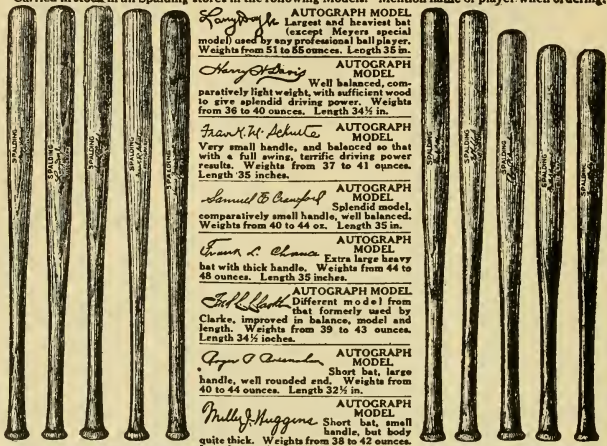 Carried in stock in all Spalding Stores in the following Models. Mention name of player when ordering.
Larry Doyle AUTOGRAPH MODEL
Largest and heaviest bat
(except Meyers special
model) used by any professional ball player.
Weights from 51 to 55 ounces. Length 35 in.
Harry H Davis AUTOGRAPH
MODEL
Well balanced, com-
paratively light weight, with sufficient wood
to give splendid driving power. Weights
from 36 to 40 ounces. Length 34½ in.
Frank M. Schulte AUTOGRAPH
MODEL
Very small handle, and balanced so that
with a full swing, terrific driving power
results. Weights from 37 to 41 ounces.
Length 35 inches.
Samuel E Crawford AUTOGRAPH
MODEL
Splendid model,
comparatively small handle, well balanced.
Weights from 40 to 44 oz. Length 35 in.
Frank L. Chance AUTOGRAPH
MODEL
Extra large heavy
bat with thick handle. Weights from 44 to
48 ounces. Length 35 inches.
AUTOGRAPH MODEL
Different model from
that formerly used by
Clarke, improved in balance, model and
length. Weights from 39 to 43 ounces.
Length 34½ inches.
Roger P Bresnahan AUTOGRAPH
MODEL
Short bat, large
handle, well rounded end. Weights from
40 to 44 ounces. Length 32½ in.
Miller J. Huggins AUTOGRAPH
MODEL
Short bat, small
handle, but body
quite thick. Weights from 38 to 42 ounces.
SPALDING
SPALDING
SPALDING
SPALDING
SPALDING
SPALDING
SPALDING
SPALDING
SPALDING
SPALDING